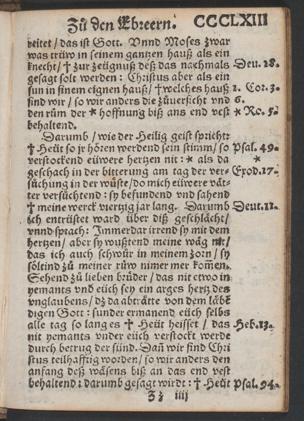 Zů den Ebreern. CCCLXIII
reitet / das ist Gott. Vnnd Moses zwar
was trüw in seinem gantzen hauß als ein
knecht / † zur zeügnuß deß das nachmals Deu. 18.
gesagt solt werden: Christus aber als ein
sun in sinem eignen hauß / † welches hauß 1. Cor. 3.
sind wir / so wir anders die zůuersicht vnd 6.
den rům der * hoffnung biß ans end vest * Ro. 5.
behaltend.
Darumb / wie der Heilig geist spricht:
† Heüt so jr hören werdend sein stimm / so Psal. 49.
verstockend eüwere hertzen nit: * als da *
geschach in der bitterung am tag der ver= Exod. 17.
sůchung in der wůste / do mich eüwere vät=
ter versůchtend: sy befundend vnd sahend
† meine werck viertzig jar lang. Darumb Deut. 11.
ich entrüstet ward über diß geschlächt /
vnnd sprach: Jmmerdar irrend sy mit dem
hertzen / aber sy wußtend meine wäg nit /
das ich auch schwůr in meinem zorn / sy
söltind zů meiner růw nimmer kommen.
Sehend zů lieben brüder / das nit etwo in
yemants vnd eüch sey ein arges hertz des
vnglaubens / dz da abträtte von dem läbē
digen Gott: sunder ermanend eüch selbs
alle tag so lang es † Heüt heisset / das Heb. 13.
nit yemants vnder eüch verstockt werde
durch betrug der sünd. Dañ wir sind Chri
stus teilhafftig worden / so wir anders den
anfang deß wäsens biß an das end vest
behaltend: darumb gesagt wirdt: † Heüt Psal. 94.
Zz iiij